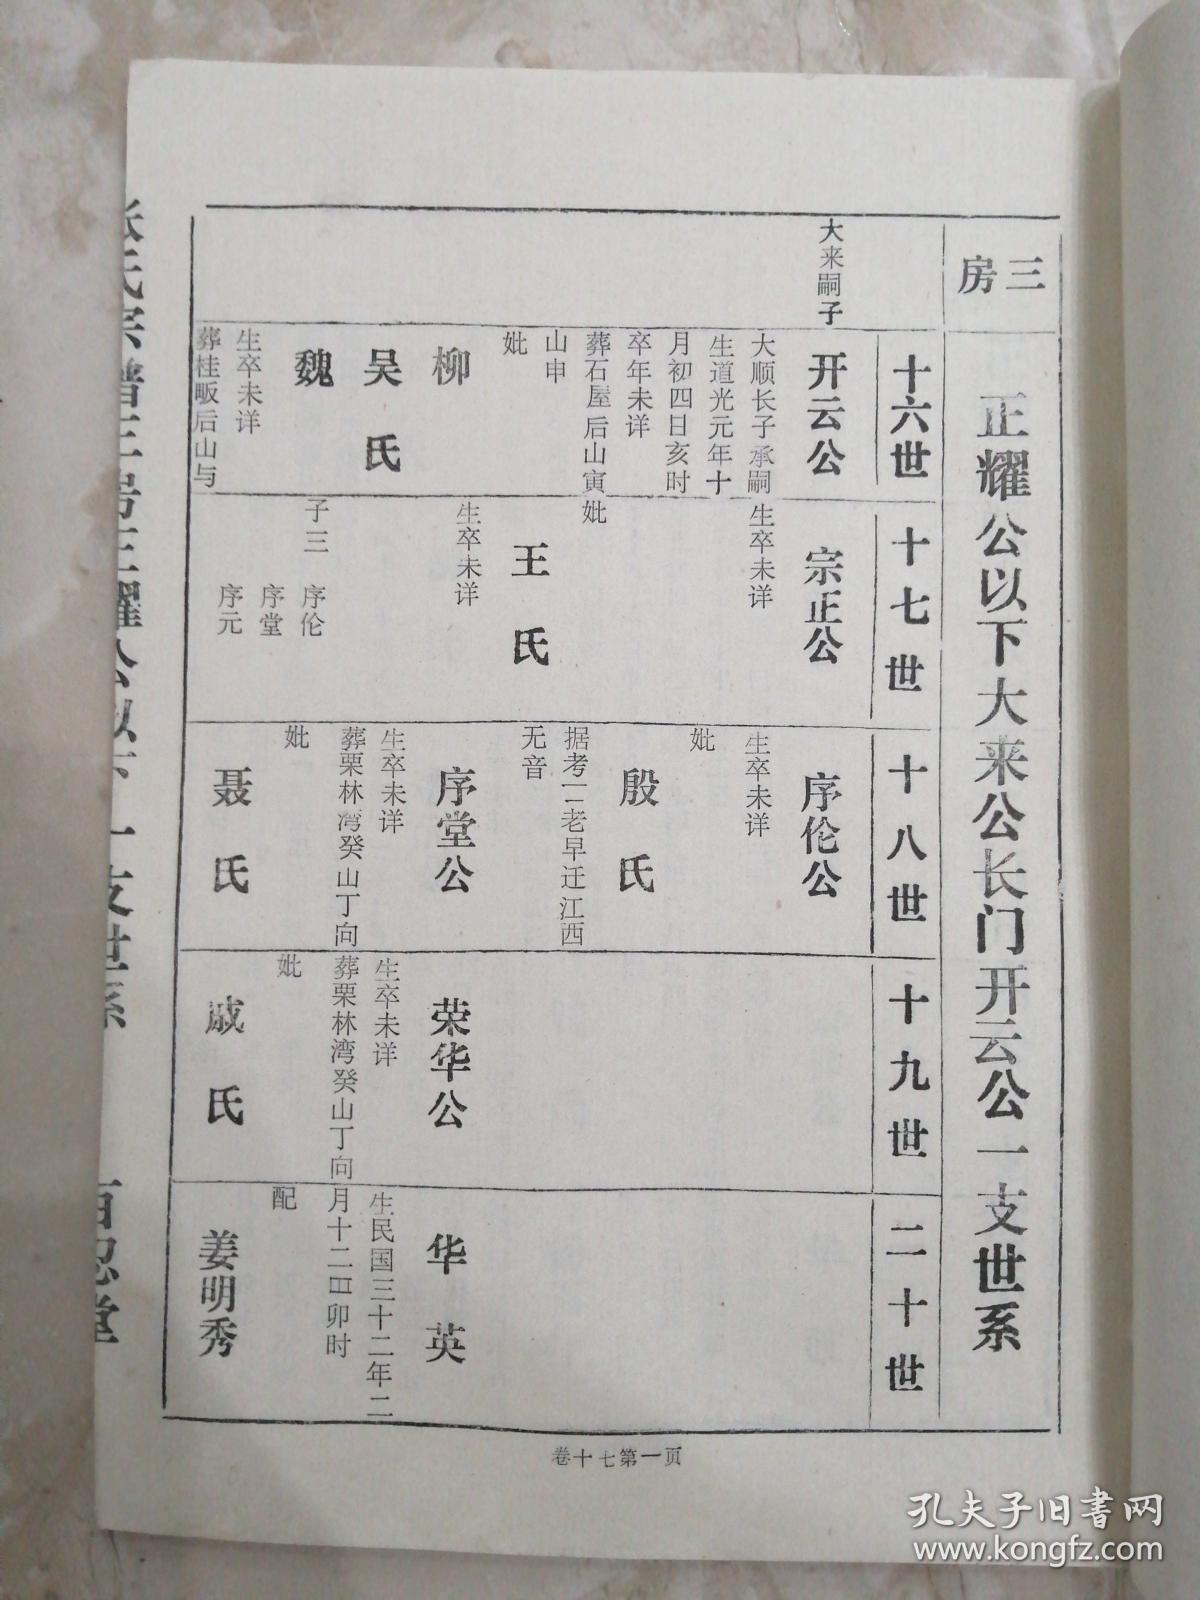 三房
正耀公以下大来公长门开云公一支世系
十六世
大来嗣子
开云公
大顺长子承嗣
生道光元年十
月初四日亥时
卒年未详
葬石屋后山寅
山申
妣
柳
吴氏
魏
生卒未详
葬桂畈后山与
十七世
宗正公
生卒未详
妣
王氏
生卒未详
子三
序伦
序堂
序元
十八世
序伦公
生卒未详
妣
殷氏
据考一老早迁江西
无音
序堂公
生卒未详
葬栗林湾癸山丁向
妣
聂氏
十九世
荣华公
生卒未详
葬栗林湾癸山丁向
妣
戚氏
二十世
华英
生民国三十二年二
月十二日卯时
配
姜明秀
张氏宗谱三房正耀公以下一支世系
百忍堂
卷十七第一页
孔夫子旧书网
www.kongfz.com